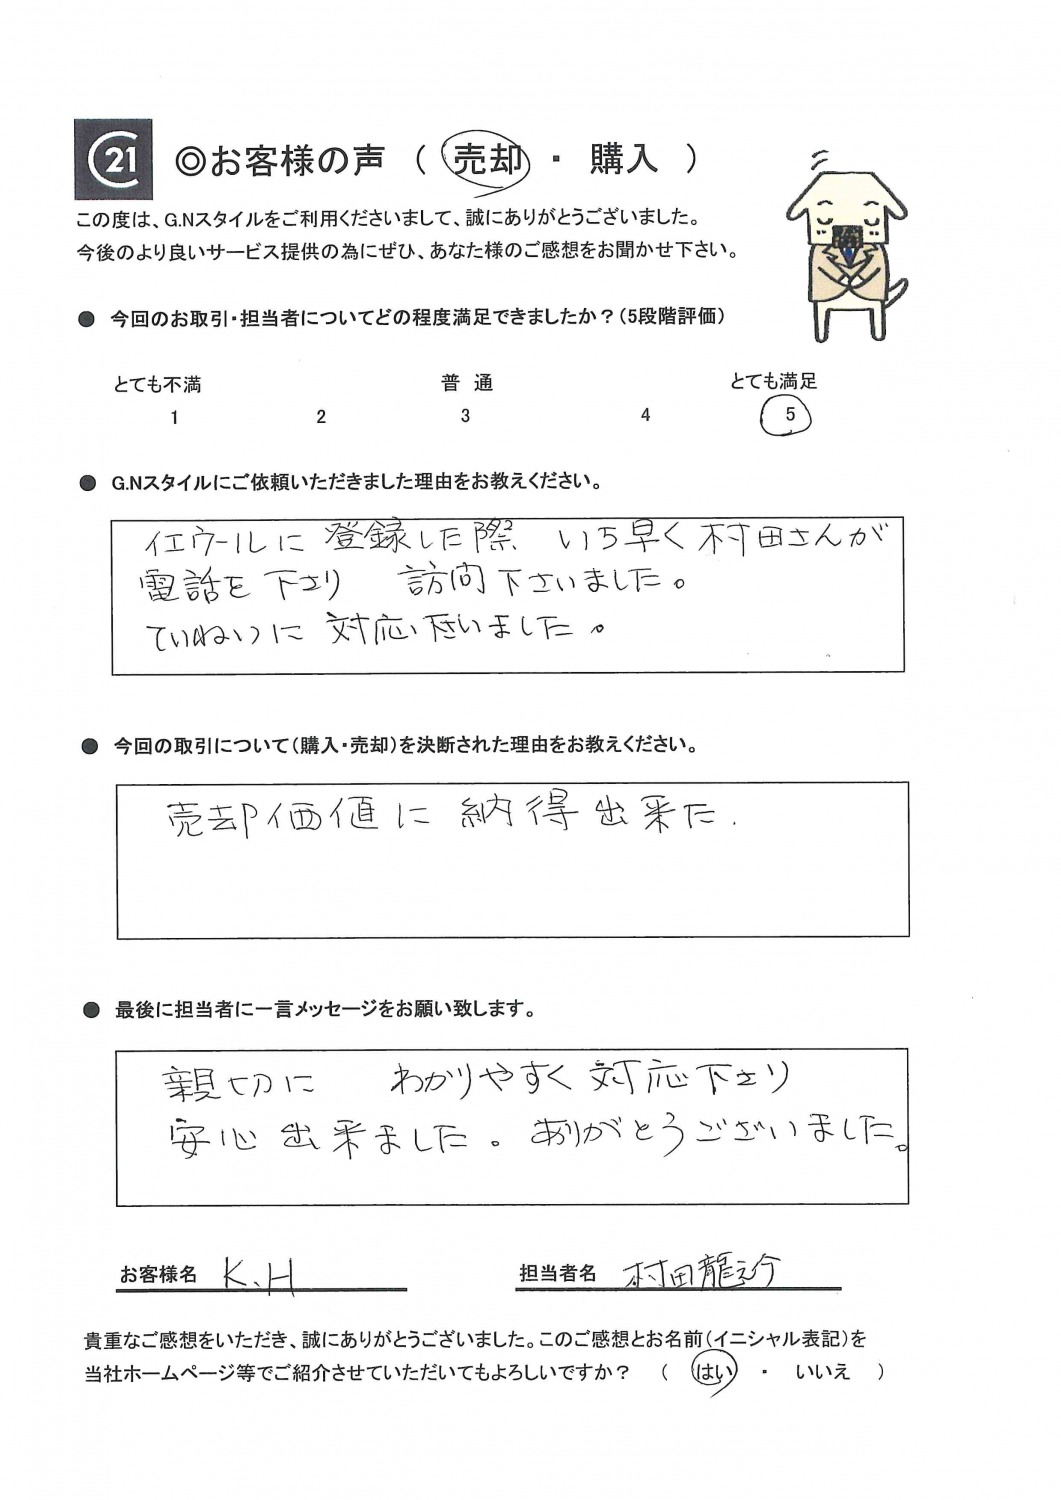 C21 ◎お客様の声 （ 売却 ・ 購入 ）
この度は、G.Nスタイルをご利用くださいまして、誠にありがとうございました。
今後のより良いサービス提供の為にぜひ、あなた様のご感想をお聞かせ下さい。
● 今回のお取引・担当者についてどの程度満足できましたか？（5段階評価）
とても不満 普 通 とても満足
1 2 3 4 5
● G.Nスタイルにご依頼いただきました理由をお教えください。
イエウールに 登録した際 いち早く村田さんが
電話を下さり 訪問下さいました。
ていねいに 対応下さいました。
● 今回の取引について（購入・売却）を決断された理由をお教えください。
売却価値に 納得出来た.
● 最後に担当者に一言メッセージをお願い致します。
親切に わかりやすく対応下さり
安心出来ました。ありがとうございました。
お客様名 K.H 担当者名 村田龍之介
貴重なご感想をいただき、誠にありがとうございました。このご感想とお名前（イニシャル表記）を
当社ホームページ等でご紹介させていただいてもよろしいですか？ （ はい ・ いいえ ）